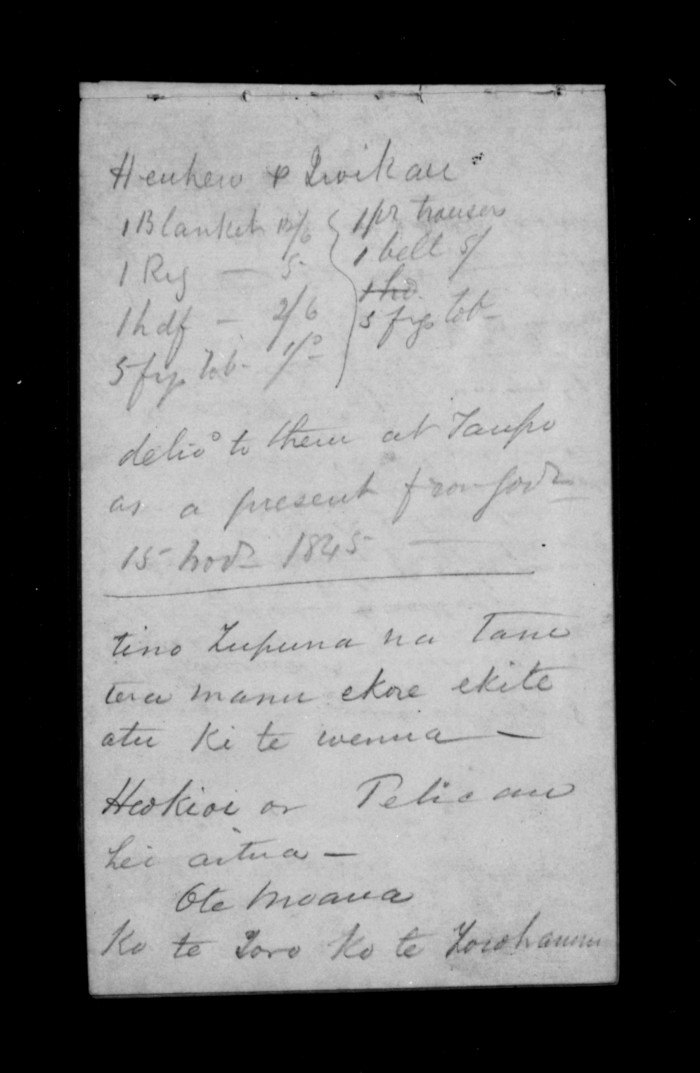 Heuheu & Iwikau
1 Blanket 12/6 1 pr trousers
1 Reg — 5- 1 belt 5/
1 hdf — 2/6
5 figs tob- 1/0 5 figs tob-
delivd to them at Taupo
as a present from Govr
15 Novr 1845 —
tino Tupuna na Tane
tera manu ekore ekite
atu ki te wenua —
Hookioi or Pelican
hei aitua —
Ote Moana
Ko te Toro Ko te